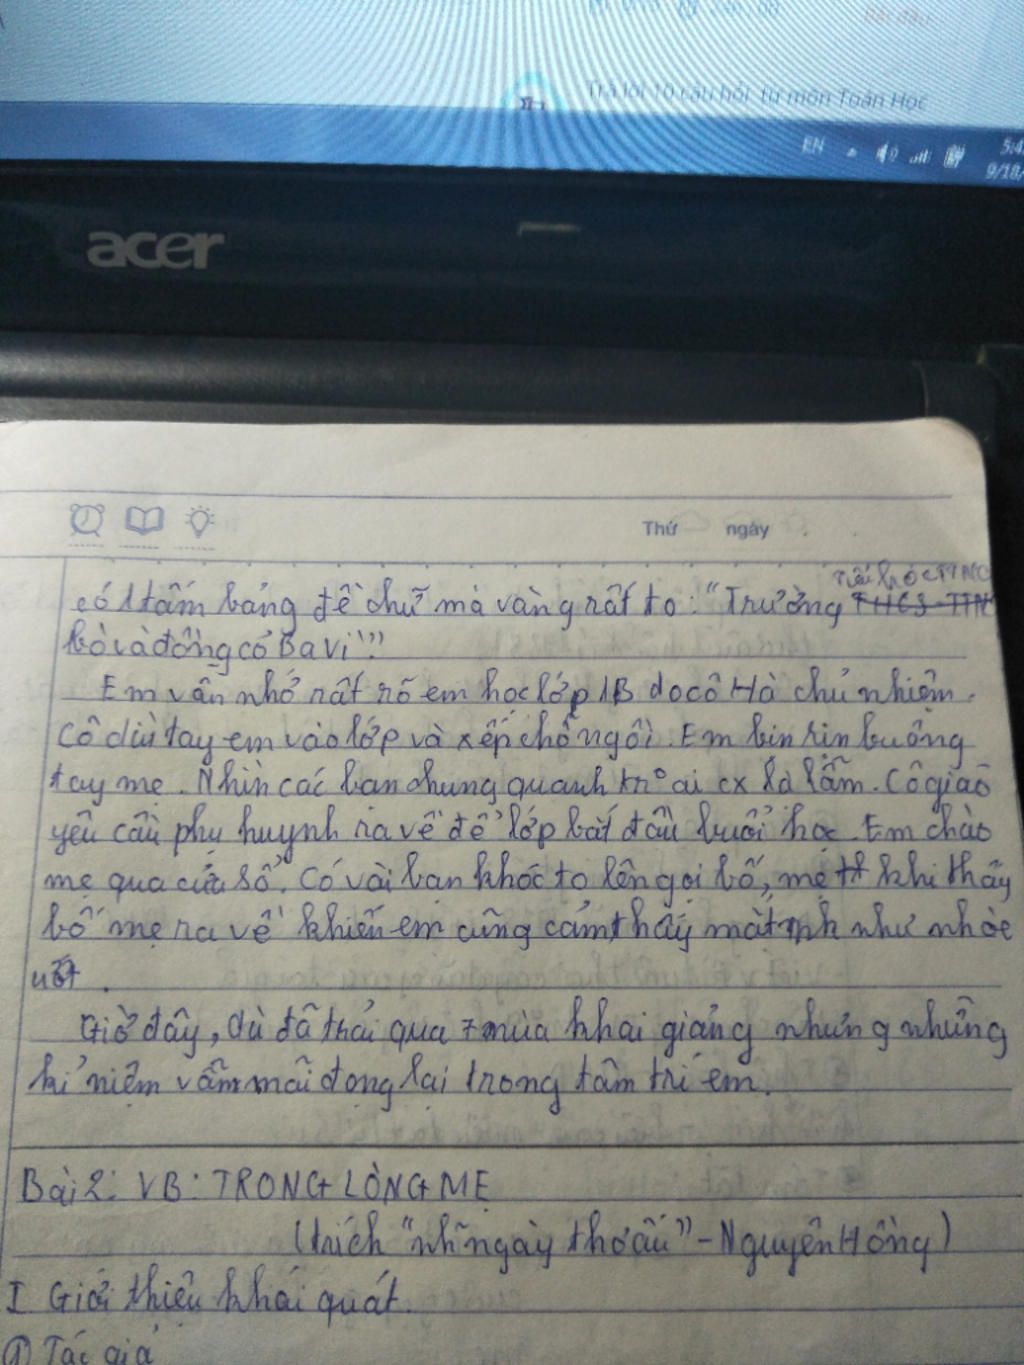 Trả lời 10 câu hỏi từ môn Toán Học
EN
5:4
9/18/
acer
Thứ ngày
Tiểu học TTNC
có 1 tấm bảng đề chữ mà vàng rất to: "Trường THCS TTN
bò và đồng cỏ Ba Vì"
Em vẫn nhớ rất rõ em học lớp 1B do cô Hà chủ nhiệm.
Cô dìu tay em vào lớp và xếp chỗ ngồi. Em bin rin buông
tay mẹ. Nhìn các bạn chung quanh kno ai cx lạ lẫm. Cô giáo
yêu cầu phụ huynh ra về để lớp bắt đầu buổi học. Em chào
mẹ qua cửa sổ. Có vài bạn khóc to lên gọi bố, mẹ khi thấy
bố mẹ ra về khiến em cũng cảm thấy mắt mh như nhòe
ướt.
Giờ đây, dù đã trải qua 7 mùa khai giảng nhưng những
kỉ niệm vẫn mãi đọng lại trong tâm trí em.
Bài 2: VB: TRONG LÒNG MẸ
(trích "nh~ ngày thơ ấu" - Nguyên Hồng)
I Giới thiệu khái quát.
① Tác giả